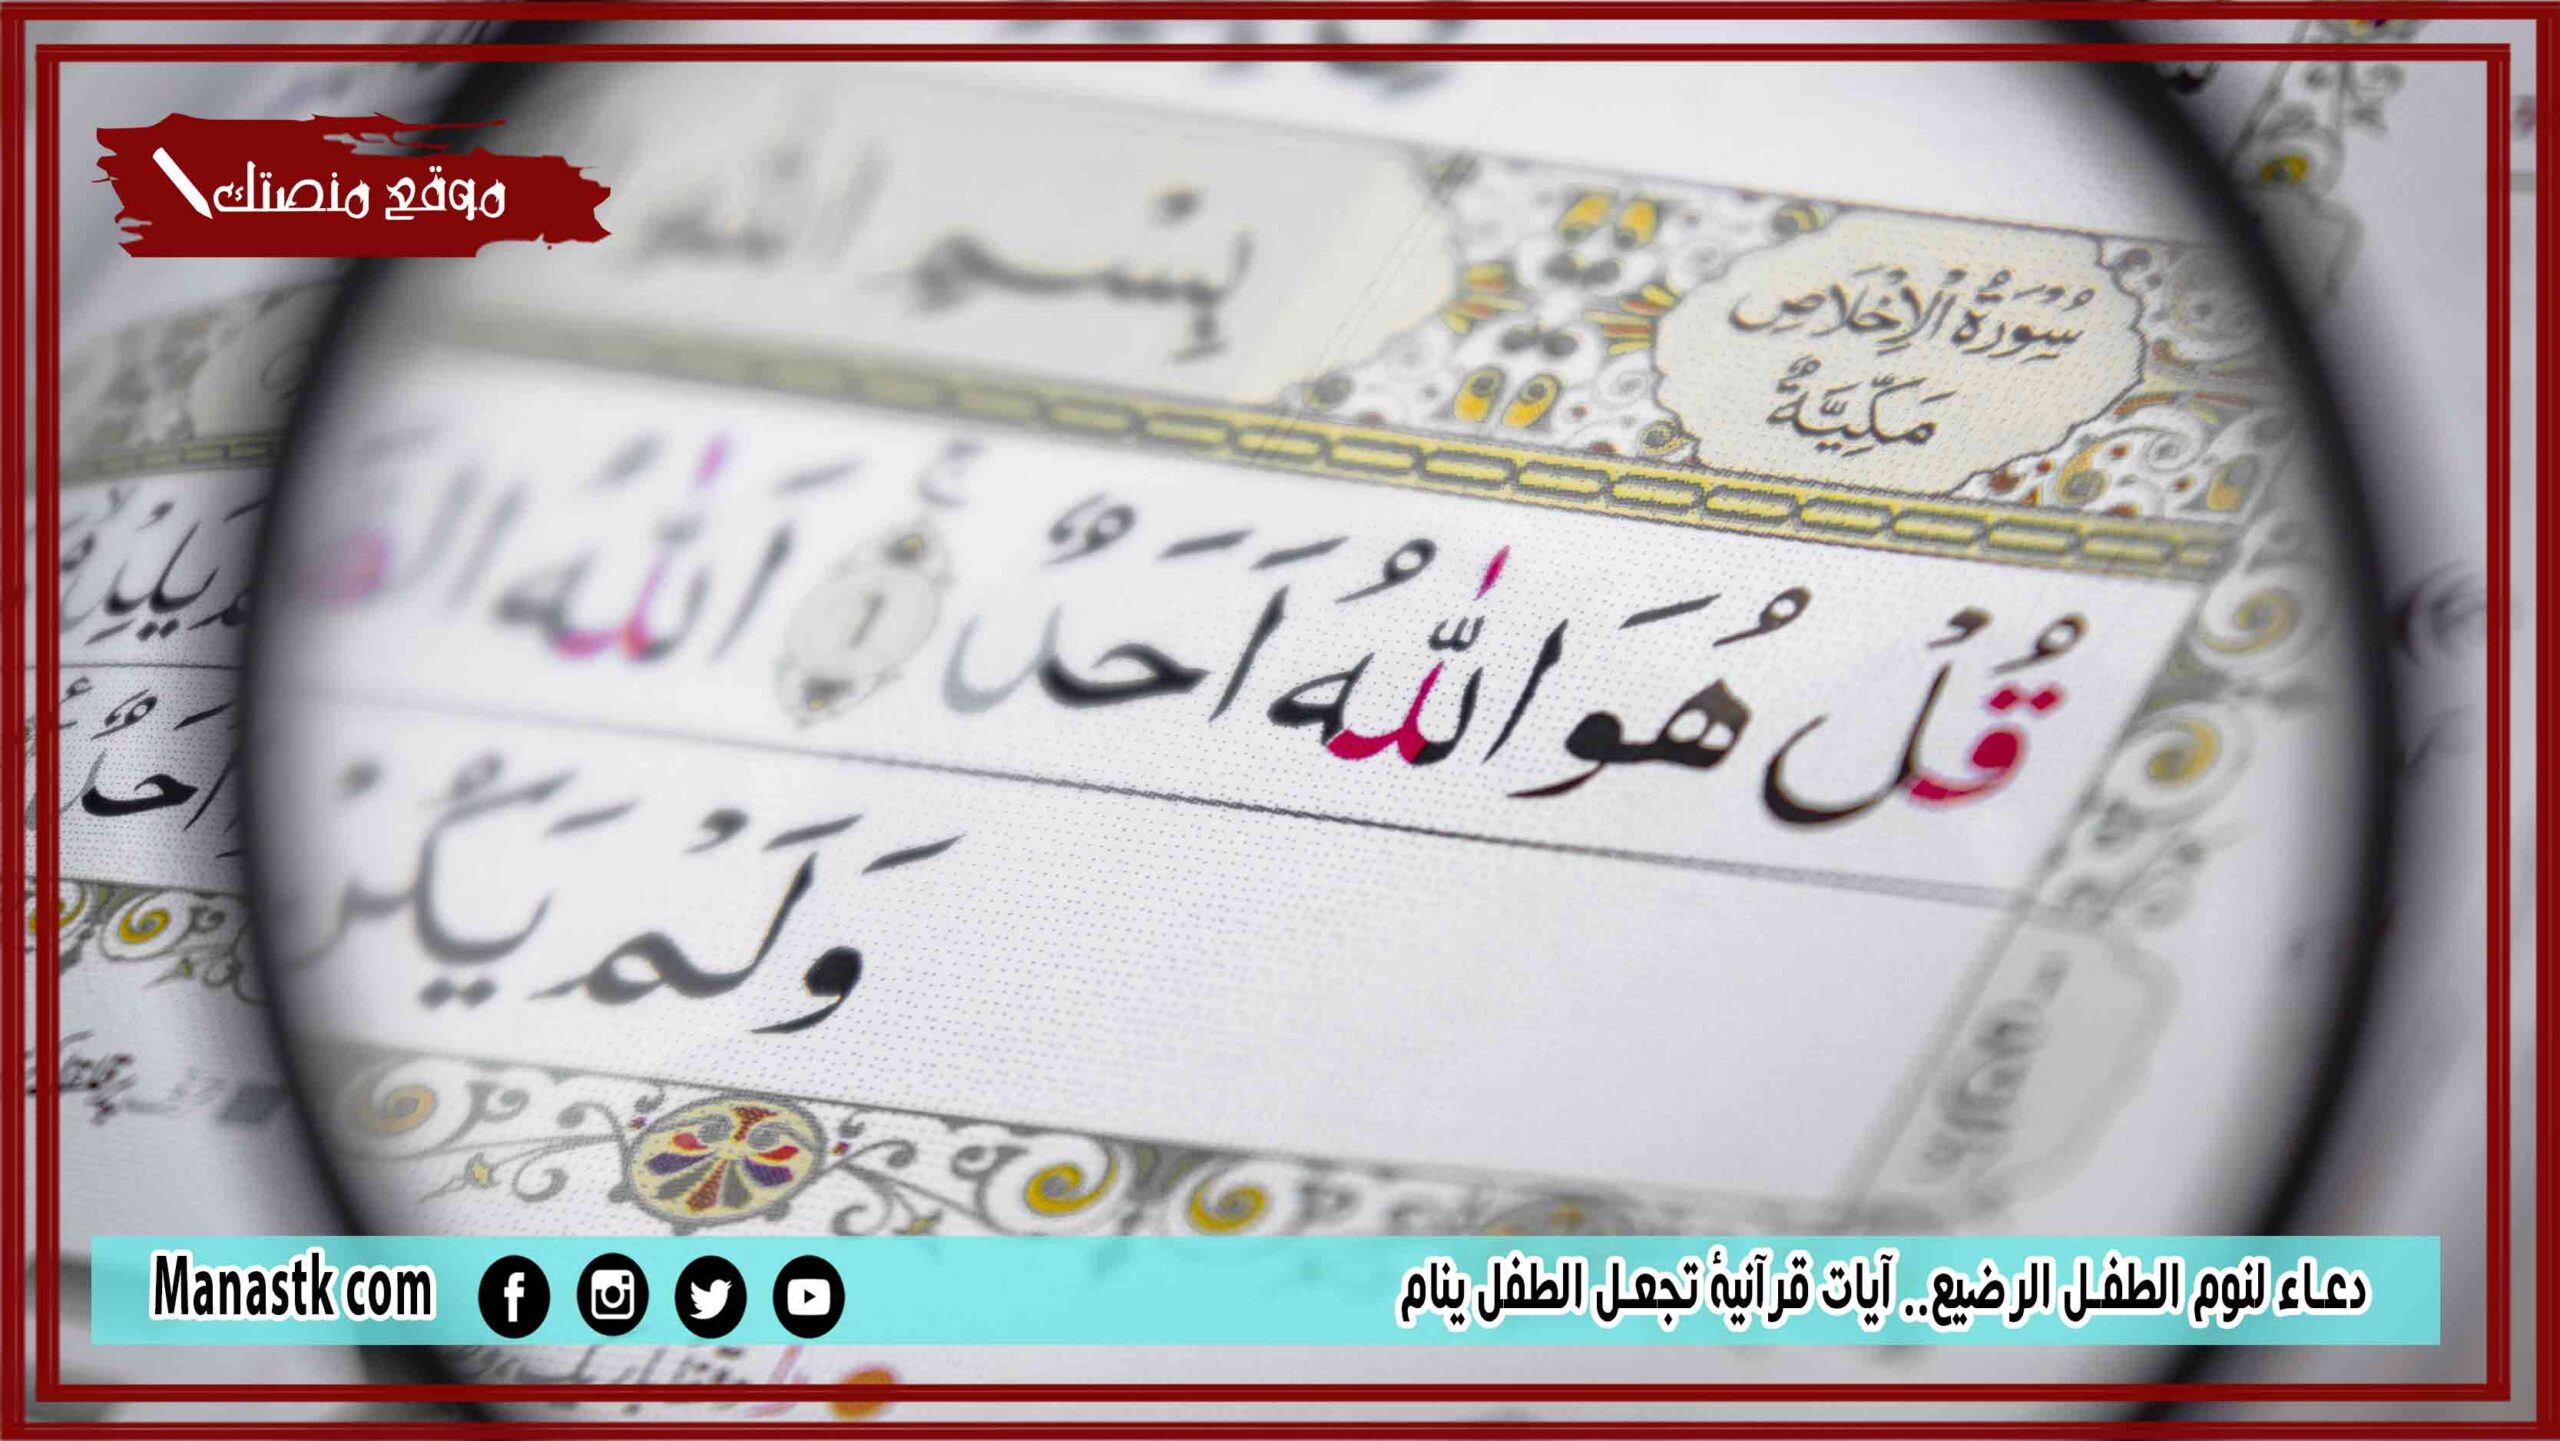 موقع منصتك
سُورَةُ الْاِخْلَاصِ
مَكِّيَّةٌ
بِسْمِ اللّٰهِ
قُلْ هُوَ اللّٰهُ اَحَدٌ ۚ ١ اَللّٰهُ
وَلَمْ يَكُنْ
يَلِدْ
اَحَدٌ
دعاء لنوم الطفل الرضيع.. آيات قرآنية تجعل الطفل ينام
Manastk com